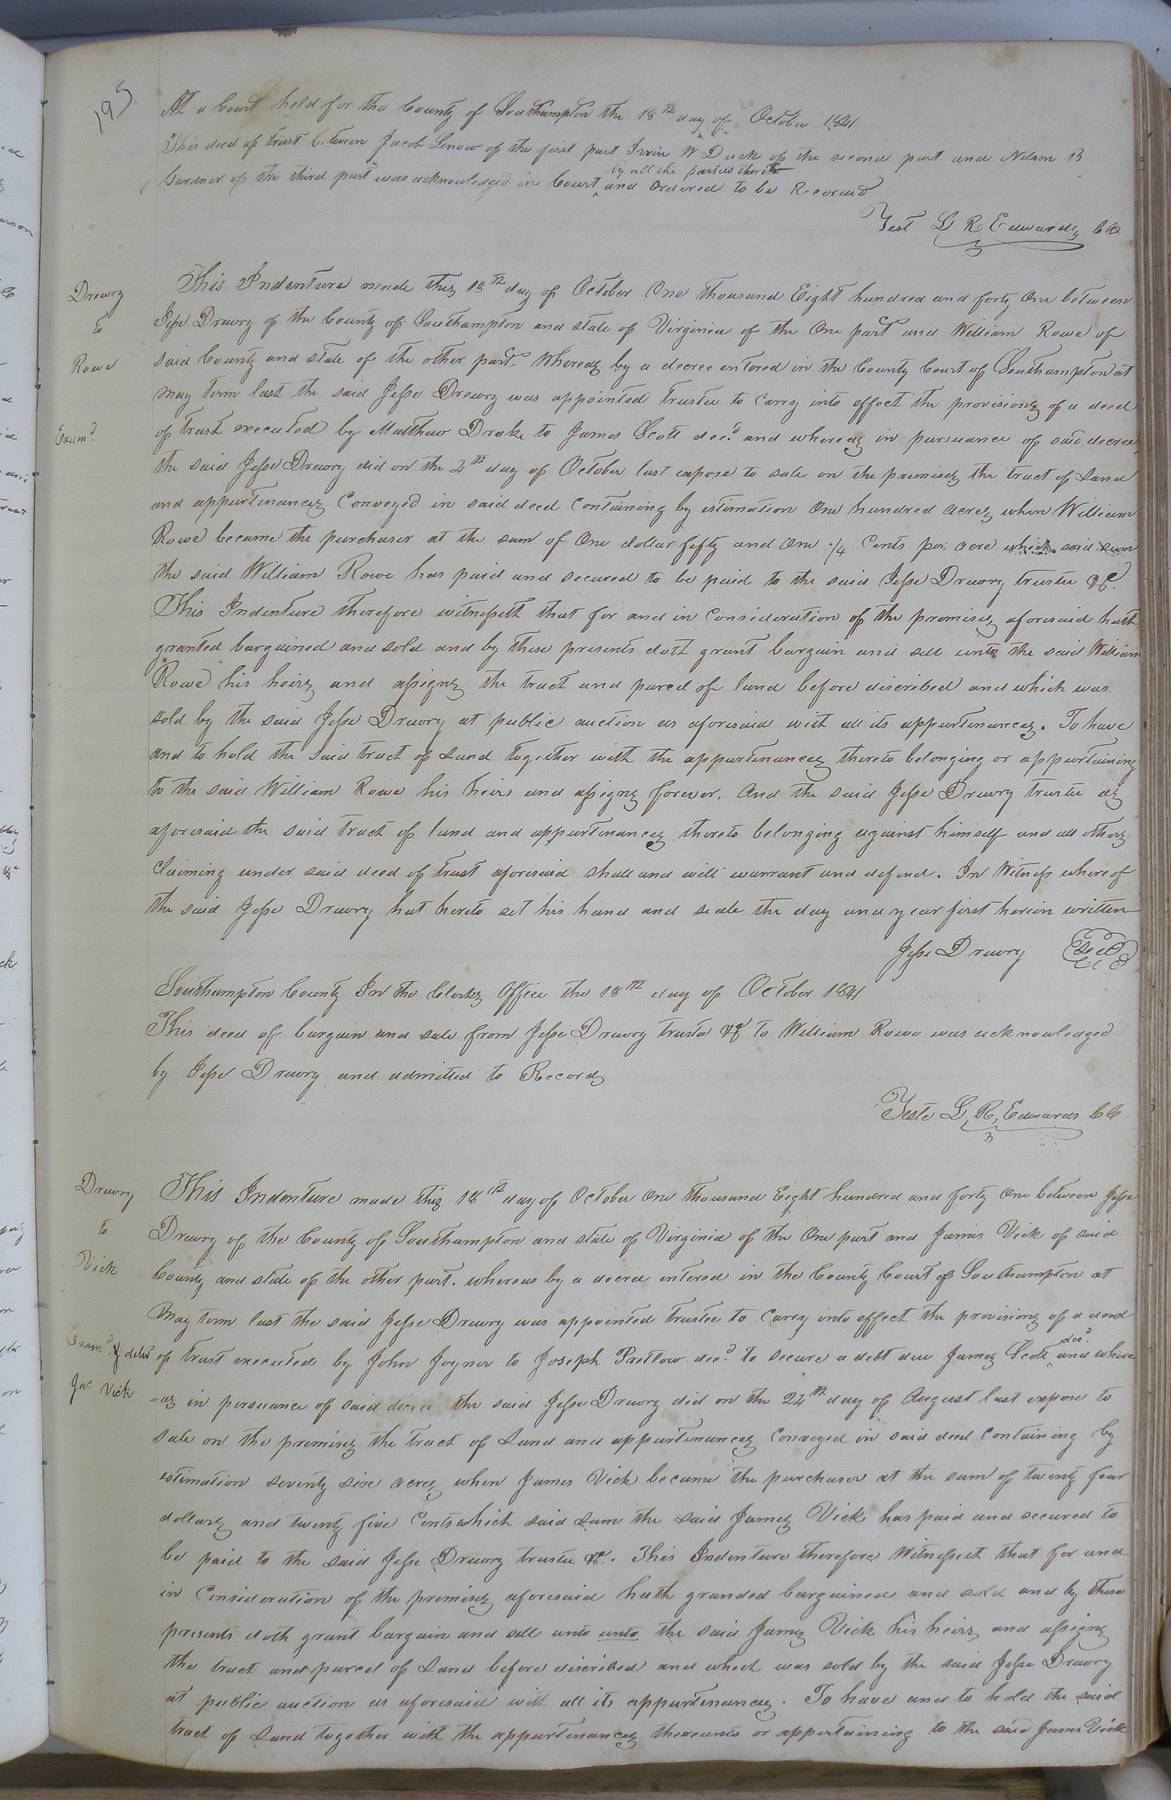 195
At a Court held for the County of Southampton the 18th day of October 1841
This deed of trust between Jacob Lenow of the first part Irvin W Duck of the second part and Nelson B
Gardner of the third part was acknowledged in Court by all the parties thereto and ordered to be Recorded
Test L R Edwards CC
Drewry
to
Rowe
Examd.
This Indenture made this 18th day of October One thousand Eight hundred and forty One between
Jesse Drewry of the County of Southampton and state of Virginia of the One part and William Rowe of
said County and state of the other part. Whereas by a decree entered in the County Court of Southampton at
may term last the said Jesse Drewry was appointed trustee to carry into effect the provisions of a deed
of trust executed by Matthew Drake to James Scott decd. and whereas in pursuance of said decree
the said Jesse Drewry did on the 2th day of October last expose to sale on the premises the tract of Land
and appurtenances Conveyed in said deed Containing by estimation One hundred acres when William
Rowe became the purchaser at the sum of One dollar fifty and one 1/4 Cents per acre which said sum
the said William Rowe has paid and secured to be paid to the said Jesse Drewry trustee &c.
This Indenture therefore witnesseth that for and in Consideration of the premises aforesaid hath
granted bargained and sold and by these presents doth grant bargain and sell unto the said William
Rowe his heirs and assigns the tract and parcel of land before discribed and which was
sold by the said Jesse Drewry at public auction as aforesaid with all its appurtenances. To have
and to hold the said tract of Land together with the appurtenances thereto belonging or appurtaining
to the said William Rowe his heirs and assigns forever. And the said Jesse Drewry trustee as
aforesaid the said tract of land and appurtenances thereto belonging against himself and all others
Claiming under said deed of trust aforesaid shall and will warrant and defend. In Witness whereof
the said Jesse Drewry hat hereto set his hand and seale the day and year first herein written
Jesse Drewry Seal
Southampton County In the Clerks Office the 18th day of October 1841
This deed of bargain and sale from Jesse Drewry trustee &c to William Rowe was acknowledged
by Jesse Drewry and admitted to Record
Teste L, R, Edwards CC
Drewry
to
Vick
Examd. & deld
Jas. Vick
This Indenture made this 18th day of October One thousand Eight hundred and forty One between Jesse
Drewry of the County of Southampton and state of Virginia of the One part and James Vick of said
County and state of the other part. whereas by a decree entered in the County Court of Southampton at
May term last the said Jesse Drewry was appointed trustee to carry into effect the provisions of a deed
of trust executed by John Joyner to Joseph Pretlow decd. to secure a debt due James Scott decd. and where
=as in persuance of said decree the said Jesse Drewry did on the 24th day of August last expose to
sale on the premises the tract of Land and appurtenances Conveyed in said deed Containing by
estimation seventy six acres when James Vick became the purchaser at the sum of twenty four
dollars and twenty five Cents which said sum the said James Vick has paid and secured to
be paid to the said Jesse Drewry trustee &c. This Indenture therefore Witnesseth that for and
in Consideration of the premises aforesaid hath granded bargained and sold and by these
presents doth grant bargain and sell unto unto the said James Vick his heirs and assigns
the tract and parcel of Land before discribed and which was sold by the said Jesse Drewry
at public auction as aforesaid with all its appurtenances. To have and to hold the said
tract of Land together with the appurtenances thereunto or appertaining to the said James Vick